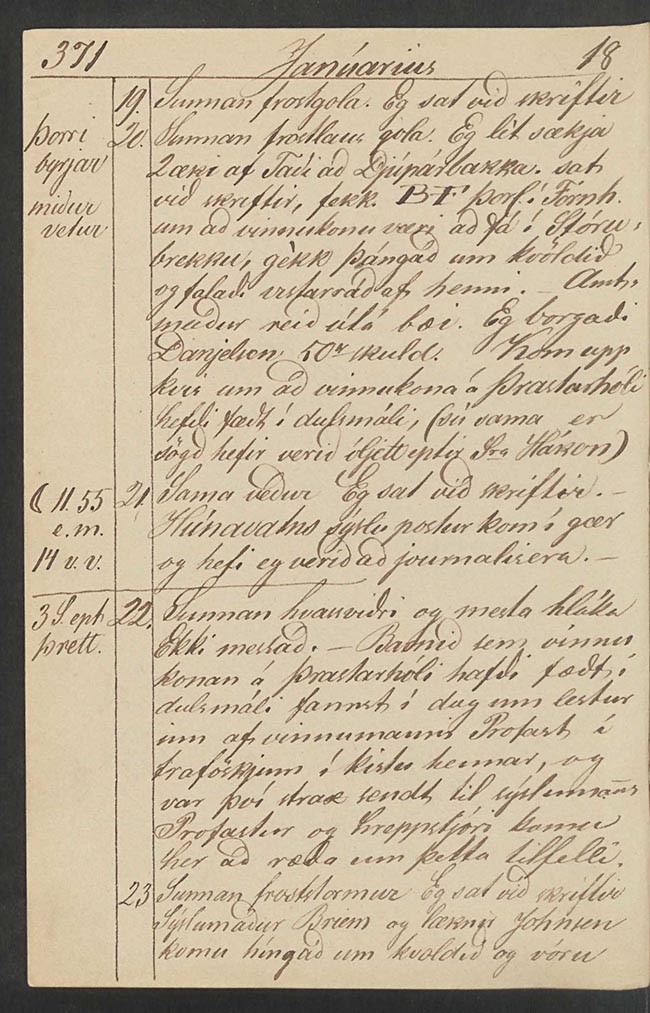 371 Januarius 18
19. Sunnan frostgola. Eg sat við skriftir
Þorri 20. Sunnan frostlaus gola. Eg lét sækja
byrjar 2 æki af Taði að Djúpárbakka. sat
miður við skriftir, fekk B-F Þorl. í Fornh.
vetur um að vinnukonu væri að fá í Stóru-
brekku, gékk þángað um kvöldið
og falaði vistarráð af henni. – Amt-
maður reið útá bæi. Eg borgaði
Danjelsen 50r skuld. Kom upp
kvis um að vinnukona á Þrastarhóli
hefði fædt í dulsmáli, (sú sama er
sögð hefir verið ólétt eptir Sra Hákon)
( 11.55 21. Sama veður Eg sat við skriftir. –
e.m. Húnavatns sýslu postur kom í gær
14 v.v. og hefi eg verið að journalisera. –
3 S. eph 22. Sunnan hvassviðri og mesta hláka
þrett. Ekki messað. – Barnið sem vinnu
konan á Þrastarhóli hafði fædt í
dulsmáli fannst í dag um lestur
inn af vinnumanni Profast í
traföskjum í kistu hennar, og
var því strax sendt til sýslumanns
Profastur og hreppstjóri komu
her að ræða um þetta tilfelli.
23 Sunnan froststormur Eg sat við skriftir
Sýslumaður Briem og læknir Johnsen
komu híngað um kvöldið og vóru